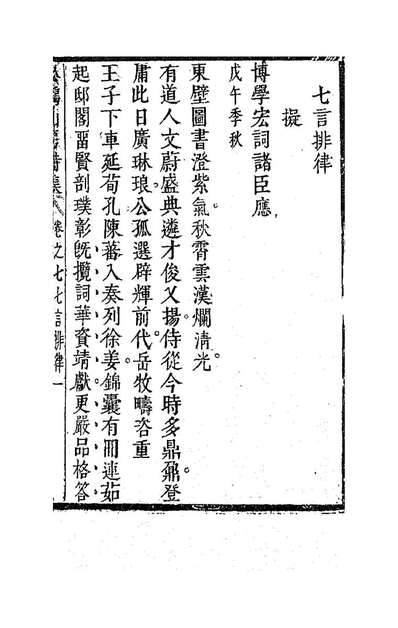 七言排律
擬
博學宏詞諸臣應
戊午季秋
東壁圖書澄紫氣秋霄雲漢爛淸光
有道人文蔚盛典遴才俊乂揚侍從今時多鼎鼐登
庸此日廣琳琅公孤選辟輝前代岳牧疇咨重
王子下車延荀孔陳蕃入奏列徐姜錦囊有冊連茹
起邸閣畱賢剖璞彰旣攬詞華資靖獻更嚴品格答
卷之七七言排律一